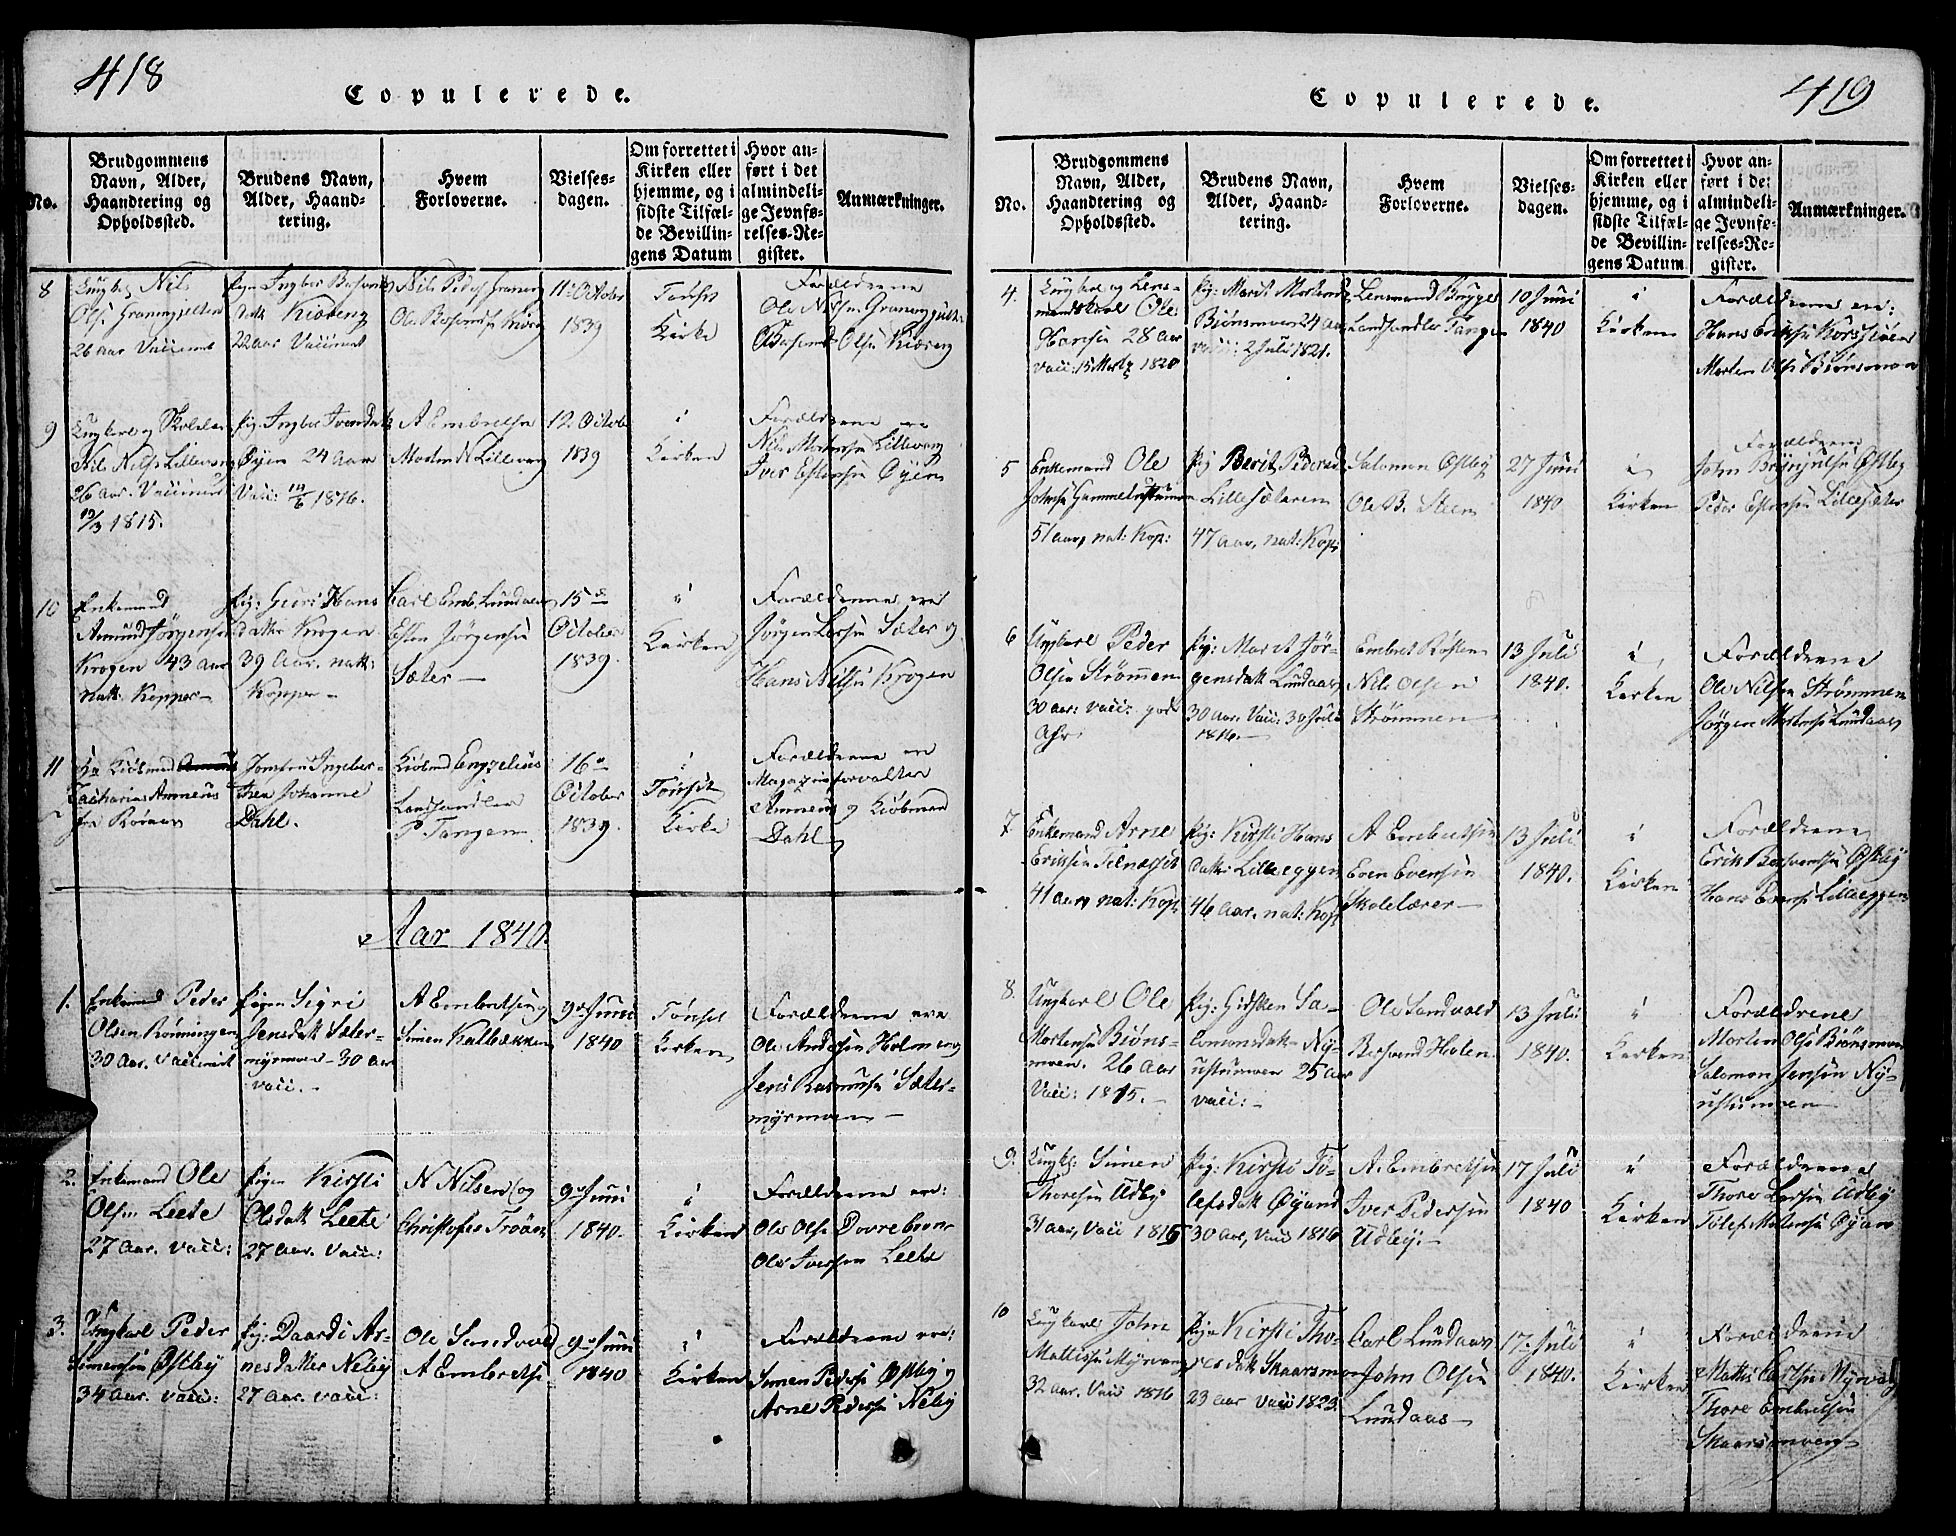 418
Copulerede.
No.
Brudgommens
Navn, Alder,
Haandtering og
Opholdssted.
Brudens Navn,
Alder, Haand-
tering.
Hvem
Forloverne.
Vielses-
dagen.
Om forrettet i
Kirken eller
hjemme, og i
sidste Tilfæl-
de Bevillin-
gens Datum
Hvor an-
ført i det
almindeli-
ge Jevnfø-
relses-Re-
gister.
Anmærkninger.
8
Nils
Olsen
26 Aar Vaccineret
22 Aar Vaccineret
11 October
1839
Tønset
Kirke
Forældrene
9
Nils Nilsen Lillevang
26 Aar. Vaccineret
19/3 1815.
Øyen 24 Aar
Vacc: 14/6 1816.
A Embretsen
Morten N Lillevang
12 October
1839
i
Kirken
Forældrene ere
Nils Mortensen Lillevang
Iver Estensen Øyen
10
Enkemand
Amund Jørgensen
Krogen 43 Aar
nat: Kopper
Pig: Guri Hans
datter Krogen
39 Aar. nat:
Kopper
Carl Emb. Lundaas
Esten Jørgensen
Sæter
15de
October
1839.
i
Kirken
Forældrene ere
Jørgen Larsen Sæter og
Hans Nilsen Krogen
11
Zacharias Anneus
fra Røraas
Jomfru Ingebor-
Thea Johanne
Dahl.
Kiöbmd Engzelius
Landhandler
P Tangen
16de
October
1839.
i
Tönset
Kirke
Forældrene ere
Magazinforvalter
Anneus og Kiöbmand
Dahl
Aar 1840.
1.
Enkemand Peder
Olsen Rønningen
30 Aar. Vaccineret
Pigen Sigri
Jensdatt Sæter-
myrmoen 30 Aar
vacc.
A Embretsen og
Simen Kalbækken
9de Juni
1840
Tønset
Kirken
Forældrene ere
Ole Andersen Holmen og
Jens Rasmusen Sæter-
myrmoen
2.
Enkemand Ole
Olsen Leete
27 Aar. vacc:
Pigen Kirsti
Olsdatt Leete
27 Aar. vacc:
N Nilsen og
Christofer Troøen
9de Juni
1840.
i
Kirken
Forældrene ere:
Ole Olsen
Ole Iversen Leete
3.
Ungkarl Peder
Simensen Østby
34 Aar. vacc:
Pig: Daardi Ar-
nesdatter Neby
27 Aar. vacc:
Ole Sandvold
A Embretsen
9de Juni
1840
i
Kirken
Forældrene ere:
Simen Pedersen Østby og
Arne Pedersen Neby
419
Copulerede.
No.
Brudgommens
Navn, Alder,
Haandtering og
Opholdssted.
Brudens Navn,
Alder, Haand-
tering.
Hvem
Forloverne.
Vielses-
dagen.
Om forrettet i
Kirken eller
hjemme, og i
sidste Tilfæl-
de Bevillin-
gens Datum
Hvor an-
ført i det
almindeli-
ge Jevnfø-
relses-Re-
gister.
Anmærkninger.
4.
Ungkarl og Lens-
mandskarl Ole
Hansen 28 Aar
vacc: 15 Marts 1820
Pig: Marit Mortensd
Biønsmoen 24 Aar
vacc: 2 Juli 1821.
Lensmand Brygge
Landhandler Tangen
10 Juni
1840
i
Kirken
Forældrene ere:
Hans Eriksen
Morten Olsen Biönsmoen
5
Enkemand Ole
51 Aar, nat: Kop:
Pig Berit Pedersd
Lillesæteren
47 Aar, nat: Kop:
Salomon Østby
Ole B. Steen
27 Juni
1840
i
Kirken
Forældrene
John Brynjulsen Østby
Peder Estensen Lillesæter
6
Ungkarl Peder
Olsen Strømmen
30 Aar: vacc:
Pig: Marit Jør-
gensdatt Lundaas
30 Aar. Vacc: 30 Juli
1816.
Embret
Nils Olsen
Strømmen
13 Juli
1840.
i
Kirken
Forældrene
Ole Nilsen Strømmen
Jørgen Mortensen Lundaas
7
Enkemand Arne
Eriksen Telneset
41 Aar, nat: Kop:
Pig: Kirsti Hans
datter Lilleeggen
46 Aar. nat: Kop:
A Embretsen
Even Evensen
Skolelærer
13 Juli
1840.
i
Kirken
Forældrene
Erik Bersvensen Østby
Hans Evensen Lilleeggen
8.
Ungkarl Ole
Mortensen Biøns-
moen. 26 Aar
Vacc: 1815.
Pig: Gidsken Sa-
lomonsdatt Ny-
ustumoen 25 Aar
vacc:
Ole Sandvold
Bersvend Holen
13 Juli
1840.
i
Kirken
Forældrene
Morten Olsen Biønsmoen
Salomon Jensen Ny-
ustumoen
9.
Ungk: Simen
Thoresen Udby
31 Aar, vacc 1815
Pig: Kirsti To-
lefsdatt Øyan
30 Aar, vacc 1816
A. Embretsen
Iver Pedersen
Udby.
17 Juli
1840
i
Kirken
Forældrene
Thore Larsen Udby
Tolef Mortensen Øyan
10
Ungkarl John
Mattisen Myrvang
32 Aar. Vacc 1816
Pigen Kirsti Tho-
resdatt Skaarsmoen
23 Aar vacc 1823.
Carl Lundaas
John Olsen
Lundaas
17 Juli
1840.
i
Kirken
Forældrene
Thore Embretsen
Skaarsmoen